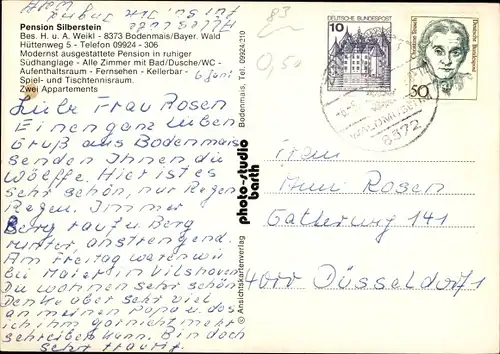 Pension Silberstein
Bes. H. u. A. Weikl - 8373 Bodenmais/Bayer. Wald
Hüttenweg 5 - Telefon 09924 - 306
Modernst ausgestattete Pension in ruhiger
Südhanglage - Alle Zimmer mit Bad/Dusche/WC -
Aufenthaltsraum - Fernsehen - Kellerbar -
Spiel- und Tischtennisraum.
Zwei Appartements
6. Juni
Liebe Frau Rosen
Einen ganz lieben
Gruß aus Bodenmais
senden Ihnen die
Wölffe. Hier ist es
sehr schön, nur Regen
Regen. Immer
Berg rauf u Berg
runter, anstrengend.
Am Freitag waren wir
bei Maier in Vilshoven
Du wohnen sehr schön
Denke aber sehr viel
an meinen Papa u. das
ich ihm garnicht mehr
schreiben kann. Bin doch
sehr traurig.
Bodenmais, Tel. 09924/210
photo-studio
barth
© Ansichtskartenverlag
83
0,50
DEUTSCHE BUNDESPOST
10
Deutsche Bundespost
50
WALDMUSEUM
8372
Frau
Anni Rosen
Gatherweg 141
4000 Düsseldorf 1